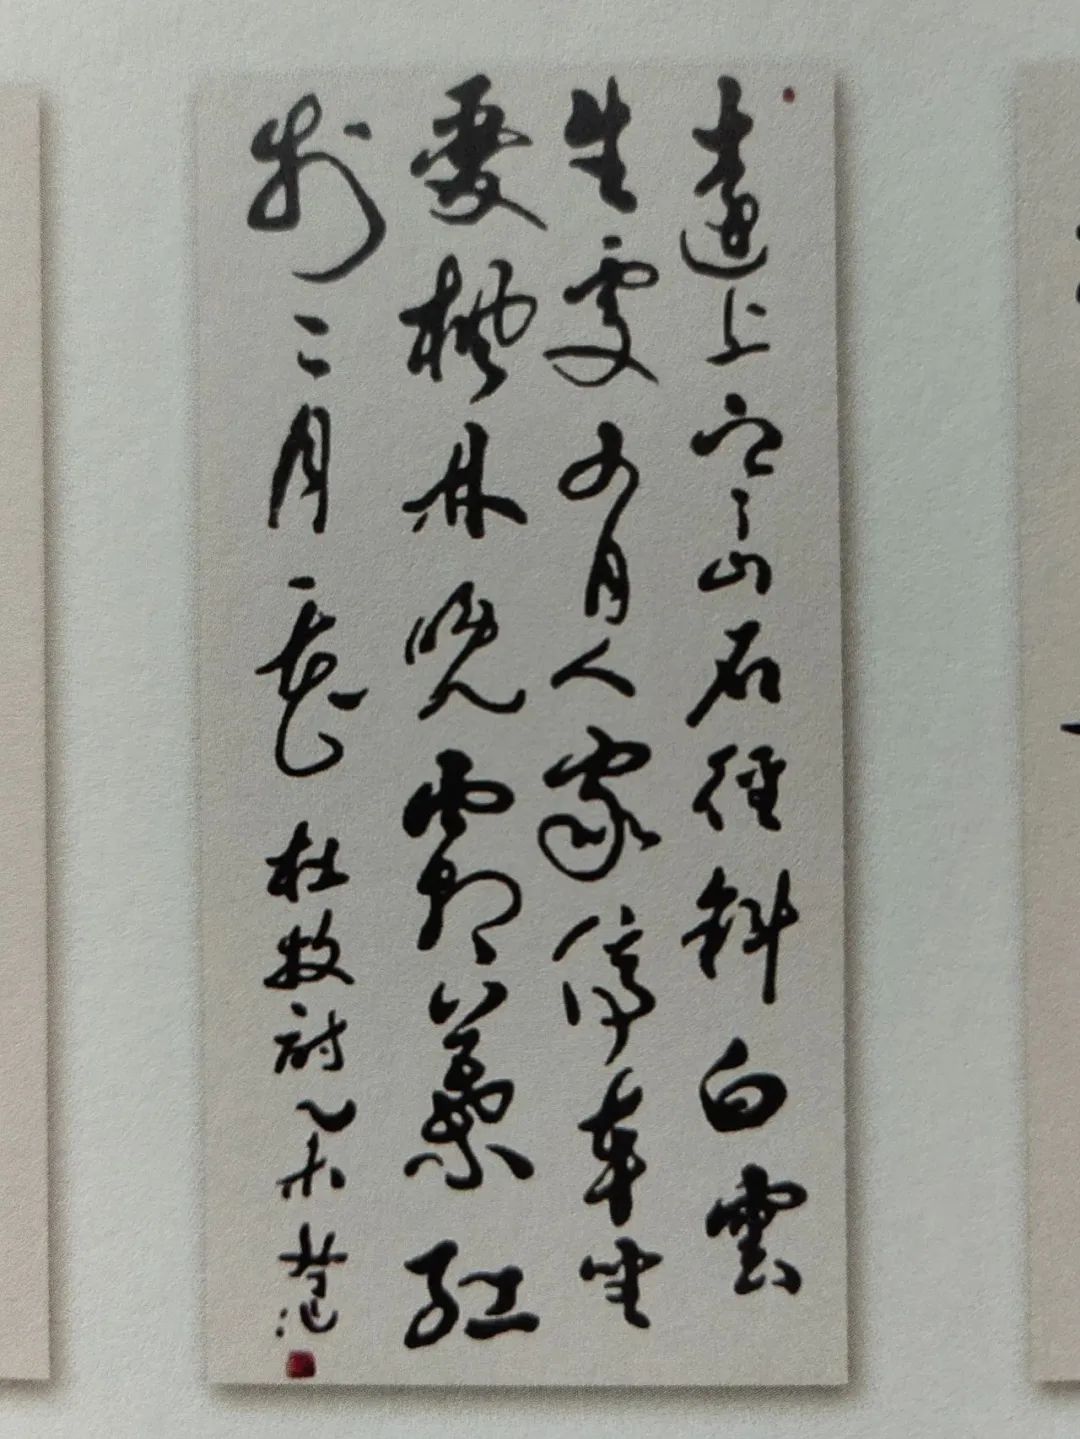 遠上寒山石徑斜白雲
生處有人家停車坐
愛楓林晚霜葉紅
於二月花 杜牧詩 乙未